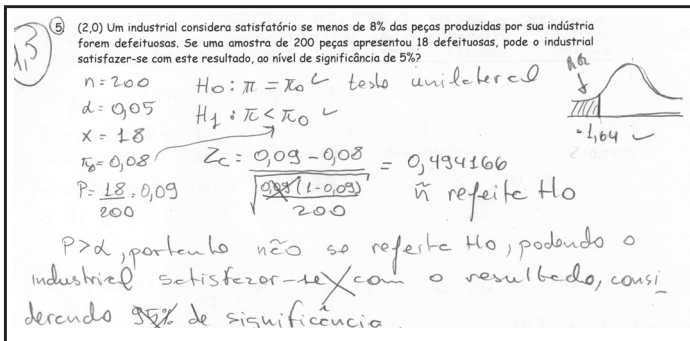 1,3
5 (2,0) Um industrial considera satisfatório se menos de 8% das peças produzidas por sua indústria
forem defeituosas. Se uma amostra de 200 peças apresentou 18 defeituosas, pode o industrial
satisfazer-se com este resultado, ao nível de significância de 5%?
n = 200
α = 0,05
x = 18
π₀ = 0,08
P = 18/200 = 0,09
H0 : π = π₀ teste unilateral
H1 : π < π₀
-1,64
Zc = (0,09 - 0,08) / √(0,09 (1-0,09) / 200) = 0,494166
ñ refeita Ho
P>α, portanto não se refeita Ho, podendo o
industrial satisfazer-se com o resultado, consi
derando 95% de significância.